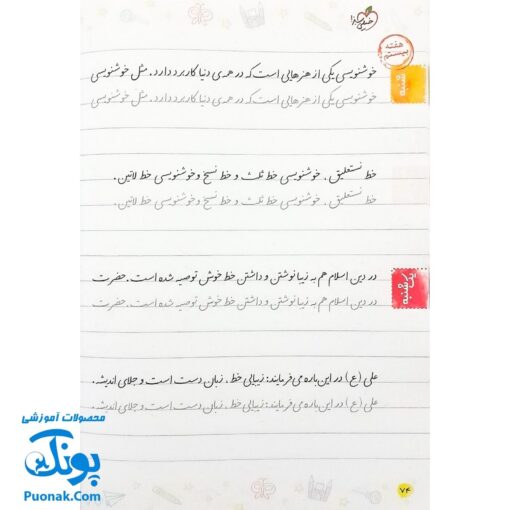 خیلی سبز
هفته
بیستم
شنبه
خوشنویسی یکی از هنرهایی است که در همه‌ی دنیا کاربرد دارد. مثل خوشنویسی
خوشنویسی یکی از هنرهایی است که در همه‌ی دنیا کاربرد دارد. مثل خوشنویسی
خط نستعلیق، خوشنویسی خط ثلث و خط نسخ و خوشنویسی خط لاتین.
خط نستعلیق، خوشنویسی خط ثلث و خط نسخ و خوشنویسی خط لاتین.
یک‌شنبه
در دین اسلام هم به زیبا نوشتن و داشتن خط خوش توصیه شده است. حضرت
در دین اسلام هم به زیبا نوشتن و داشتن خط خوش توصیه شده است. حضرت
علی (ع) در این باره می‌فرمایند: زیبایی خط، زبان دست است و جلای اندیشه.
علی (ع) در این باره می‌فرمایند: زیبایی خط، زبان دست است و جلای اندیشه.
محصولات آموزشی
پونک
Puonak.Com
۷۴